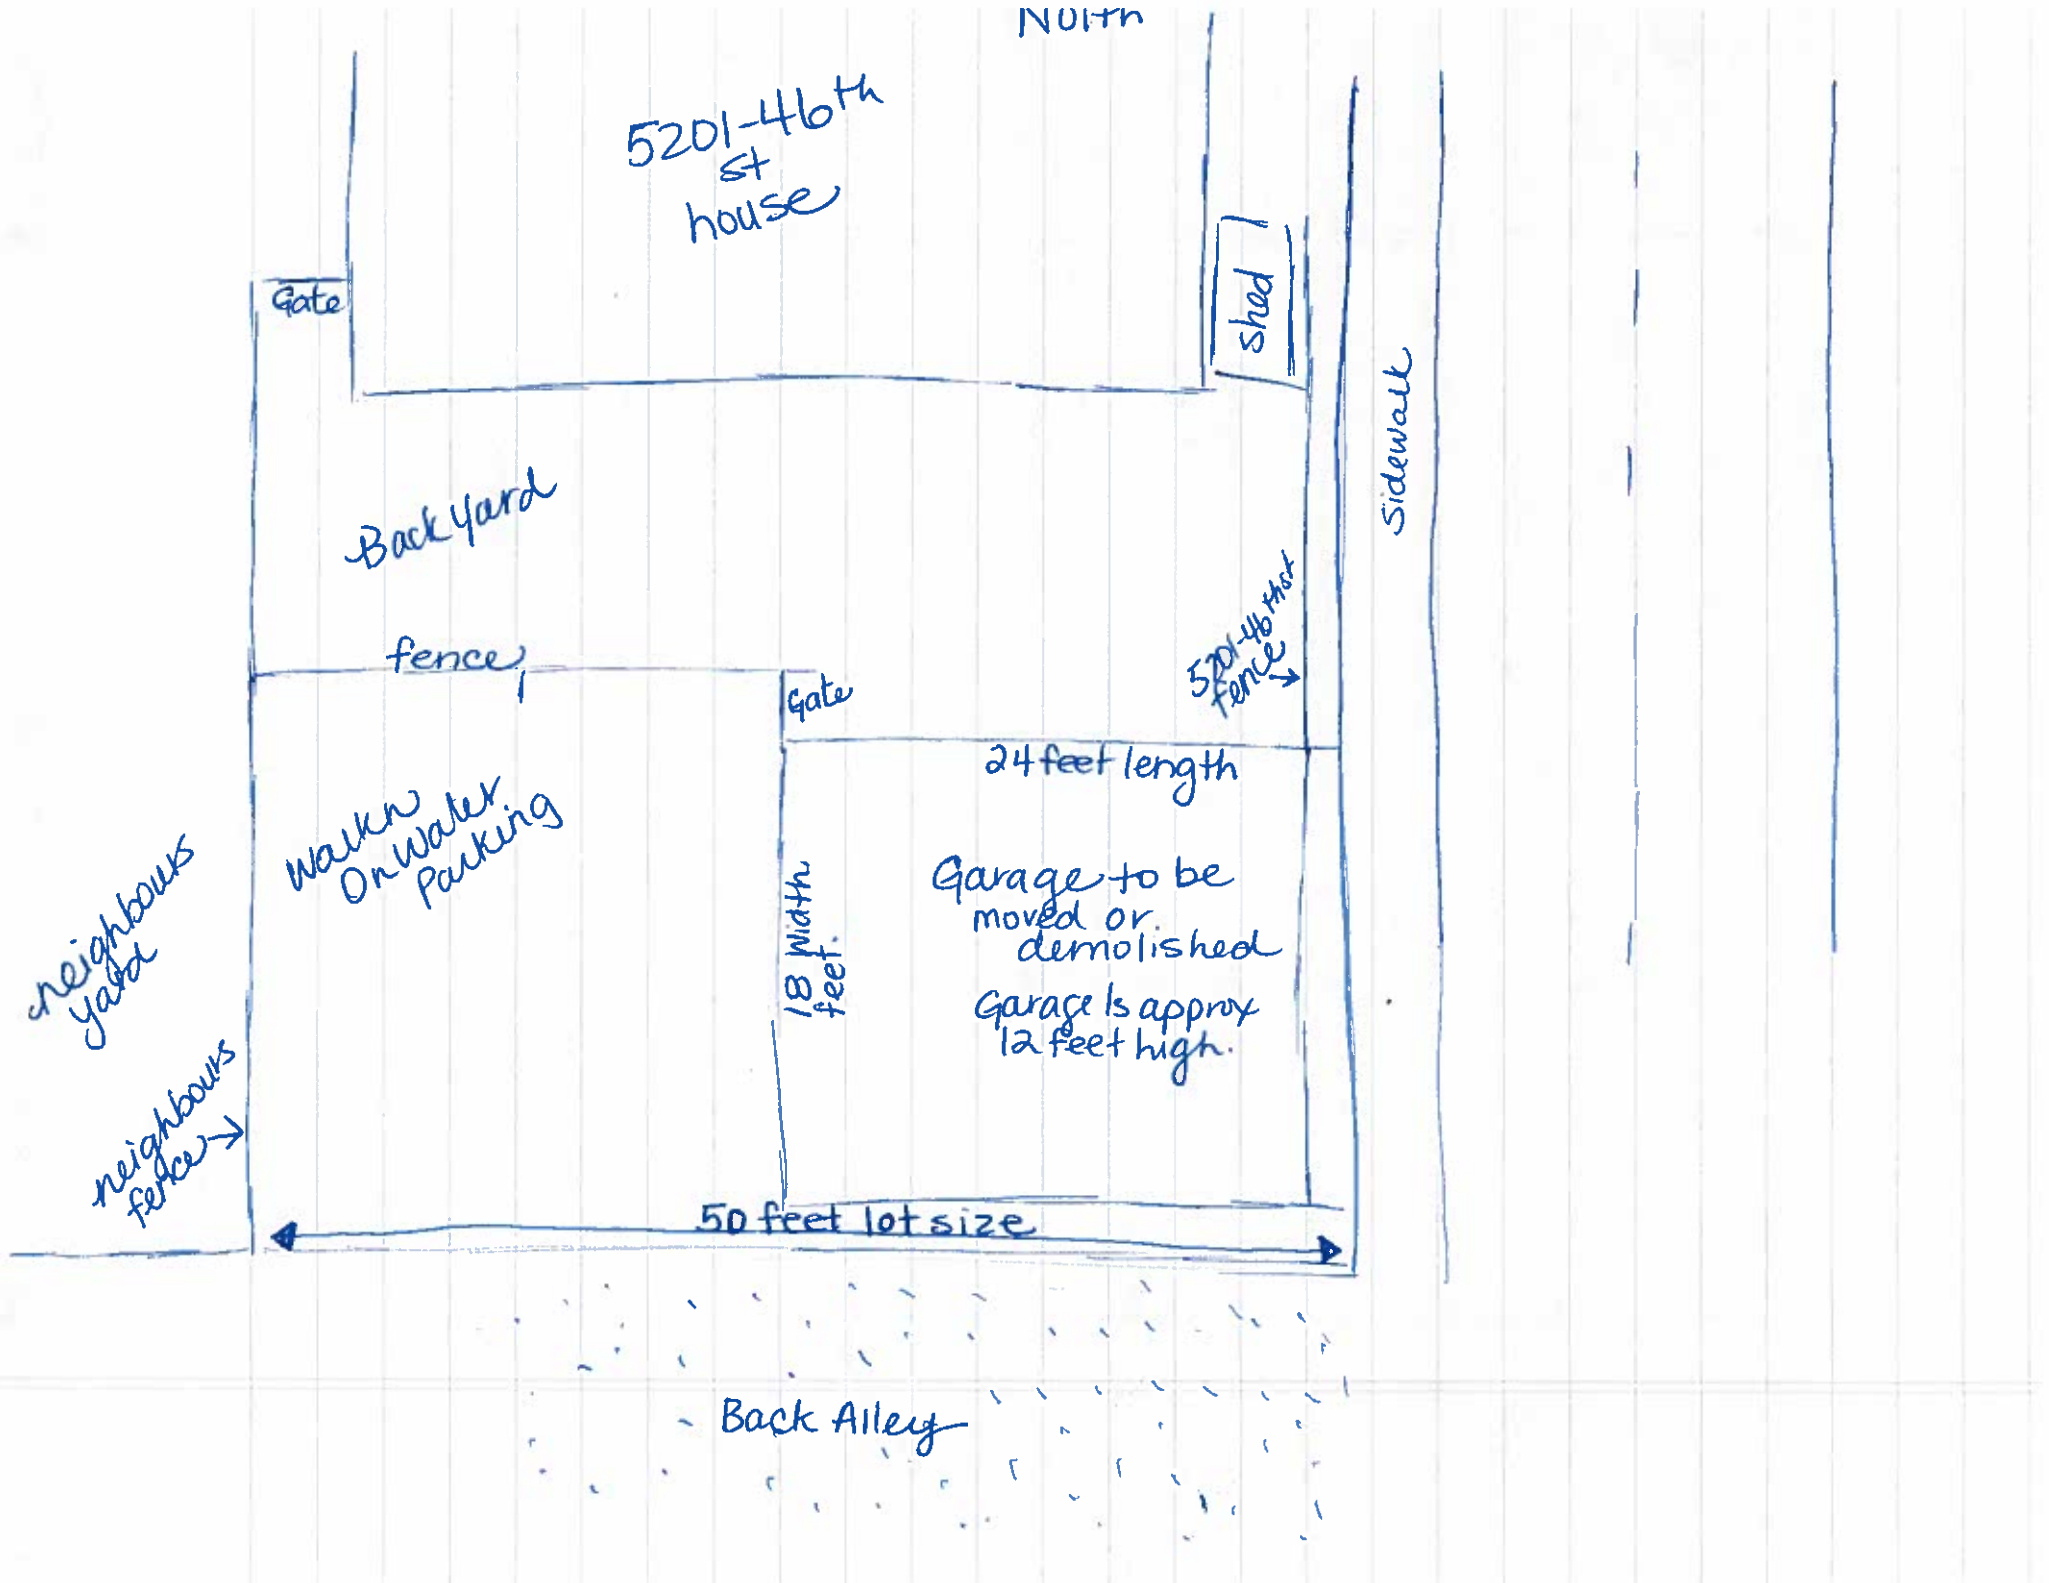 North
5201-46th
st
house
Gate
shed
Sidewalk
Back Yard
5201-46th st
fence
fence
Gate
24 feet length
Walkn
On Water
Parking
18 Width
feet.
Garage to be
moved or
demolished
Garage Is approx
12 feet high.
neighbours
yard
neighbours
fence
50 feet lot size
Back Alley